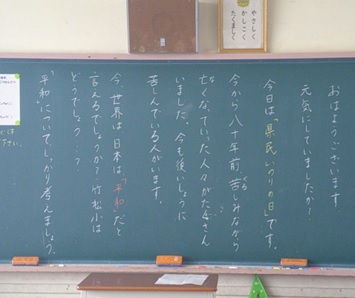 やさしく
かしこく
たくましく
おはようございます
元気にしていましたか?
今日は「県民いのりの日」です。
今から八十年前、苦しみながら
くる
亡くなっていった人々がたくさん
いました。今も後いしょうに
苦しんでいる人がいます。
今、世界は、日本は「平和」だと
言えるでしょうか?竹松小は
どうでしょう…?
「平和」について、しっかり考えましょう。